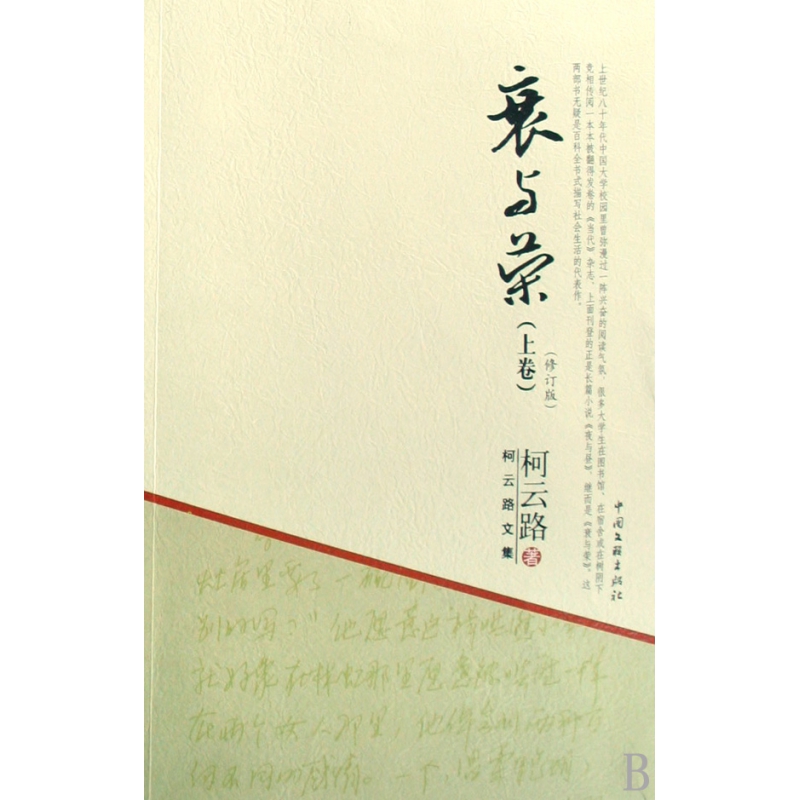 上世纪八十年代中国大学校园里曾弥漫过一阵兴奋的阅读气氛，很多大学生在图书馆、在宿舍或在树阴下
竞相传阅一本本被翻得发卷的《当代》杂志，上面刊登的正是长篇小说《夜与昼》，继而是《衰与荣》。这
两部书无疑是百科全书式描写社会生活的代表作。
衰与荣
（上卷）
（修订版）
柯云路 著
柯云路文集
中国文联出版社
就好像在林虹那里愿意
在两个女人那里，他
B